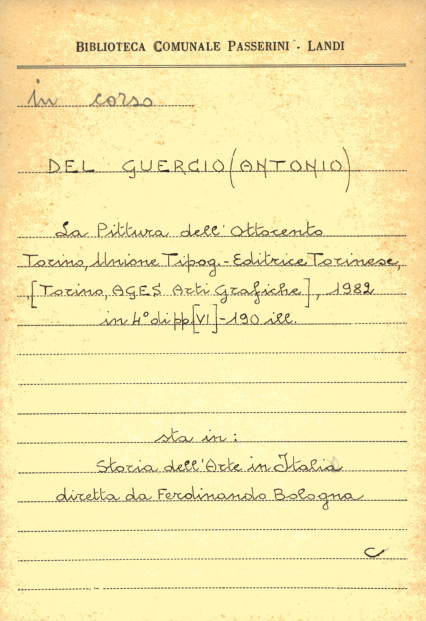 BIBLIOTECA COMUNALE PASSERINI - LANDI
in corso
DEL GUERCIO (ANTONIO)
La Pittura dell'Ottocento
Torino, Unione Tipog.-Editrice Torinese,
, [Torino, AGES Arti Grafiche], 1982
in 4° di pp. [VI]-190 ill.
sta in:
Storia dell'Arte in Italia
diretta da Ferdinando Bologna
C